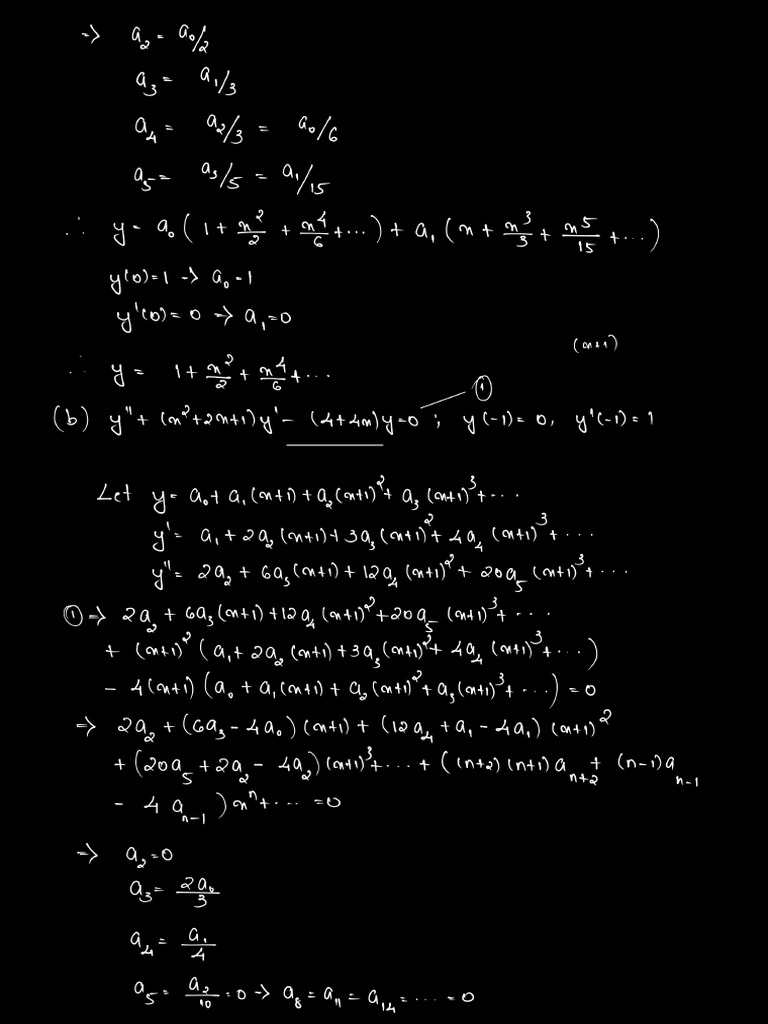 ⇒ a₂ = a₀/2
a₃ = a₁/3
a₄ = a₂/3 = a₀/6
a₅ = a₃/5 = a₁/15
∴ y = a₀(1 + x²/2 + x⁴/6 + ...) + a₁(x + x³/3 + x⁵/15 + ...)
y(0)=1 → a₀=1
y'(0)=0 → a₁=0
(x+1)
∴ y = 1 + x²/2 + x⁴/6 + ...
①
(b) y'' + (x²+2x+1)y' - (4+4x)y=0 ; y(-1)=0, y'(-1)=1
Let y = a₀ + a₁(x+1) + a₂(x+1)² + a₃(x+1)³ + ...
y' = a₁ + 2a₂(x+1) + 3a₃(x+1)² + 4a₄(x+1)³ + ...
y'' = 2a₂ + 6a₃(x+1) + 12a₄(x+1)² + 20a₅(x+1)³ + ...
① ⇒ 2a₂ + 6a₃(x+1) + 12a₄(x+1)² + 20a₅(x+1)³ + ...
+ (x+1)²(a₁ + 2a₂(x+1) + 3a₃(x+1)² + 4a₄(x+1)³ + ...)
- 4(x+1)(a₀ + a₁(x+1) + a₂(x+1)² + a₃(x+1)³ + ...) = 0
⇒ 2a₂ + (6a₃ - 4a₀)(x+1) + (12a₄ + a₁ - 4a₁)(x+1)²
+ (20a₅ + 2a₂ - 4a₂)(x+1)³ + ... + ((n+2)(n+1)aₙ₊₂ + (n-1)aₙ₋₁
- 4aₙ₋₁)xⁿ + ... = 0
⇒ a₂ = 0
a₃ = 2a₀/3
a₄ = a₁/4
a₅ = a₂/10 = 0 → a₈ = a₁₁ = a₁₄ = ... = 0